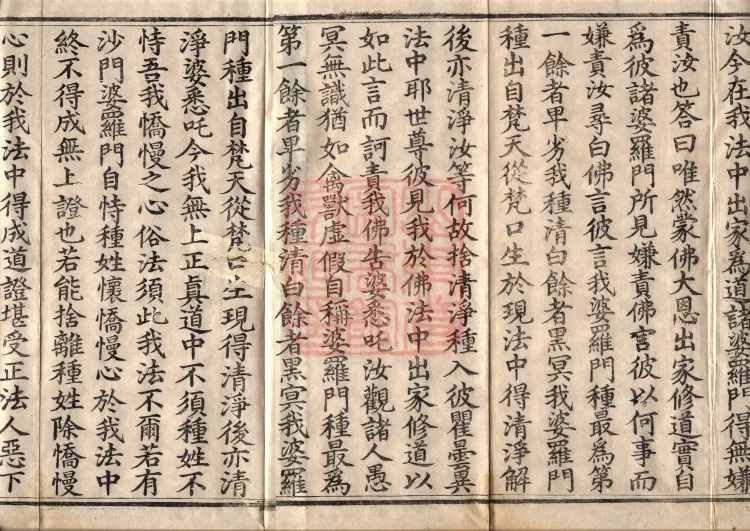 汝今在我法中出家為道諸婆羅門得無嫌
責汝也答曰唯然蒙佛大恩出家修道實自
為彼諸婆羅門所見嫌責佛言彼以何事而
嫌責汝尋白佛言彼言我婆羅門種最為第
一餘者卑劣我種清白餘者黑冥我婆羅門
種出自梵天從梵口生於現法中得清淨解
後亦清淨汝等何故捨清淨種入彼瞿曇異
法中耶世尊彼見我於佛法中出家修道以
如此言而訶責我佛告婆悉吒汝觀諸人愚
冥無識猶如禽獸虛假自稱婆羅門種最為
第一餘者卑劣我種清白餘者黑冥我婆羅
門種出自梵天從梵口生現得清淨後亦清
淨婆悉吒今我無上正真道中不須種姓不
恃吾我憍慢之心俗法須此我法不爾若有
沙門婆羅門自恃種姓懷憍慢心於我法中
終不得成無上證也若能捨離種姓除憍慢
心則於我法中得成道證堪受正法人惡下